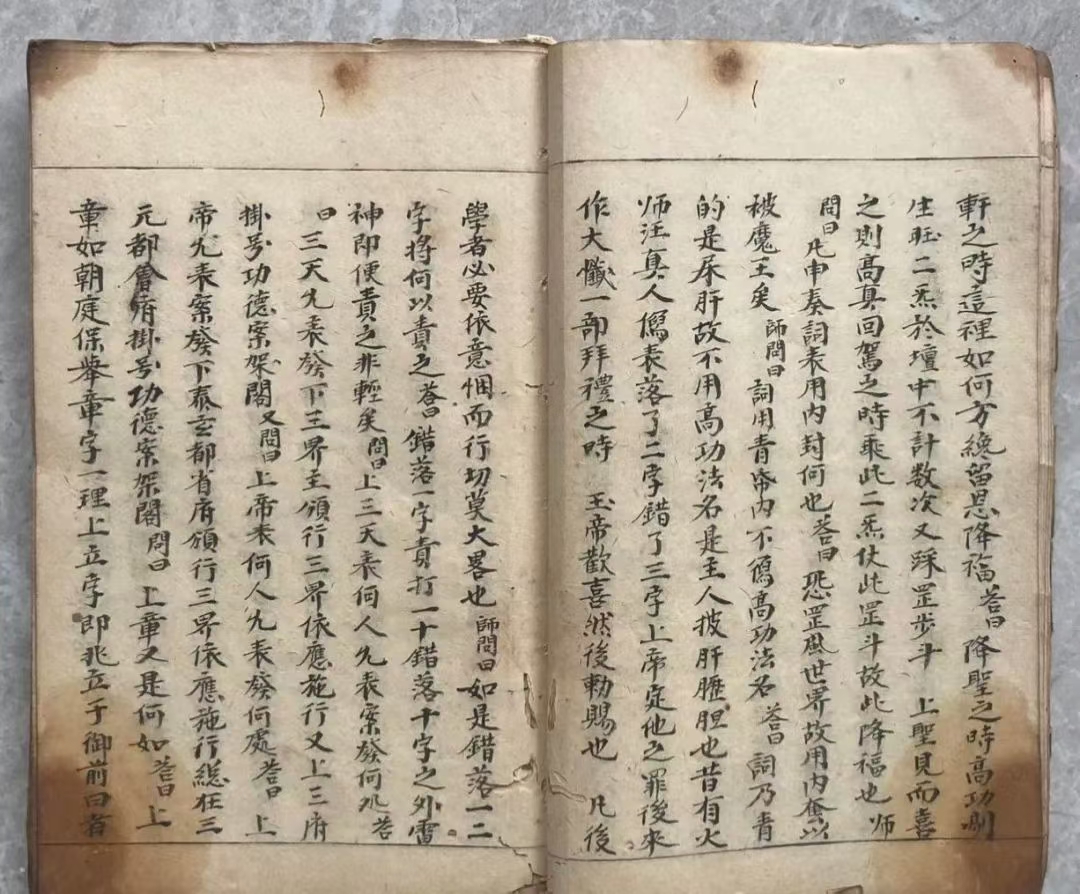 軒之時這裡如何方纔留恩降福答曰降聖之時高功剔
生旺二炁於壇中不計數次又踩罡步斗 上聖見而喜
之則高真回駕之時乘此二炁仗此罡斗故此降福也 师
問曰凢申奏詞表用内封何也答曰恐罡風世界故用内奩以
被魔王矣師問曰詞用青帋内不僞高功法名答曰詞乃青
的是屎肝故不用高功法名是主人披肝瀝胆也昔有火
师汪真人僞表落了二字錯了三字上帝定他之罪後來
作大懺一部拜禮之時 玉帝歡喜然後勅賜也 凢後
學者必要依意悃而行切莫大畧也師問曰如是錯落一二
字将何以責之答曰錯落一字責打一十錯落十字之外雷
神即便責之非輕矣問曰上三天表何人允表案發何処答
曰三天允表發下三界主頒行三界依應施行又上三府
掛号功德案架閣又問曰上帝表何人允表發何處答曰 上
帝允表案發下泰玄都省府頒行三界依應施行總在三
元都會府掛号功德案架閣問曰 上章又是何如答曰上
章如朝庭保舉章字一理上立字即兆立于御前曰者